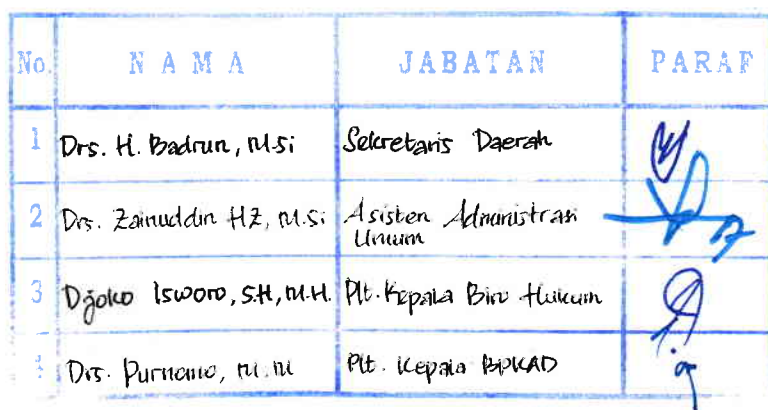 No. N A M A JABATAN PARAF
1 Drs. H. Badrun, M.Si Sekretaris Daerah
2 Drs. Zainuddin HZ, M.Si Asisten Administrasi
Umum
3 Djoko Isworo, S.H, M.H. Plt. Kepala Biro Hukum
4 Drs. Purnomo, M.M Plt. Kepala BPKAD